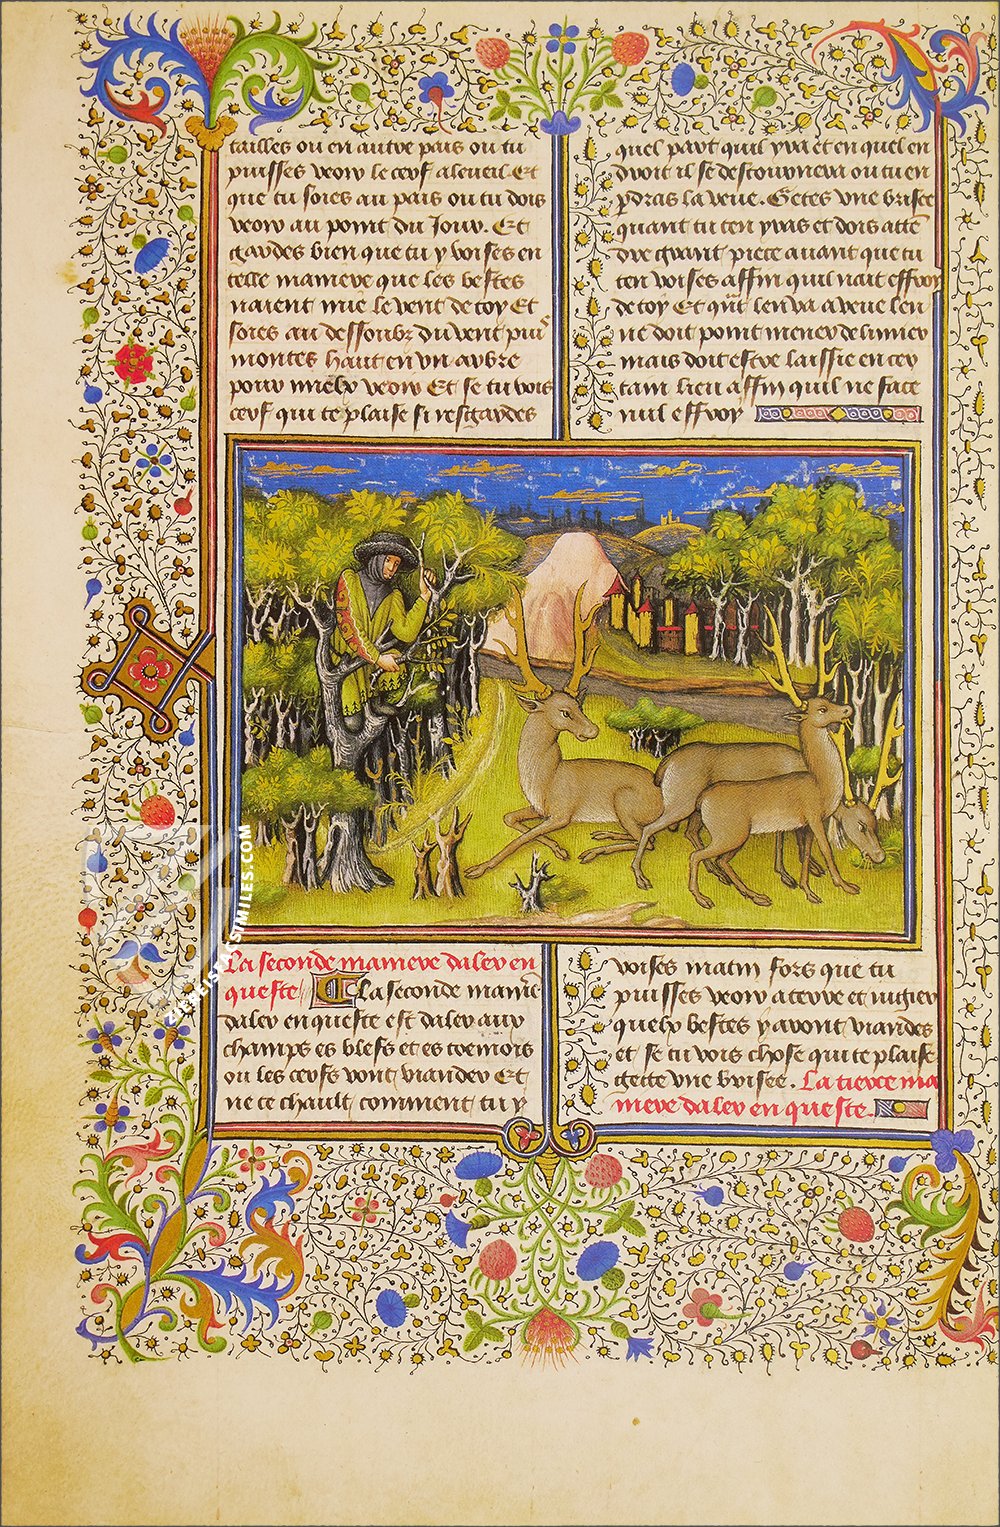 tailles ou en autre pais ou tu
puisses veoir le cerf a leueil. Et
que tu soies au pais ou tu dois
veoir au point du Jour. Et
gardes bien que tu y voises en
telle maniere que les bestes
naient mie le vent de toy Et
soies au dessoubz du vent puis
montes hault en vn arbre
pour mielx veoir Et se tu vois
cerf qui te plaise si resgardes
quel part quil yra et en quel en
droit il se destournera ou tu en
perdras la veue. Gettes vne brisee
quant tu ten yras et dois atten
dre grant piece auant que tu
ten voises affin quil nait effroy
de toy Et quant len va a veue len
ne doit point mener de limier
mais doit estre laissie en cer
tain lieu affin quil ne face
nul effroy
La seconde maniere daler en
queste La seconde maniere
daler en queste est daler aux
champs es blefs et es tremois
ou les cerfs vont viander Et
ne te chault comment tu y
voises matin fors que tu
puisses veoir a terre et iugier
quelx bestes y auront viandes
et se tu vois chose qui te plaise
gette vne brisee. La tierce ma
niere daler en queste.
ZIEREISFACSIMILES.COM